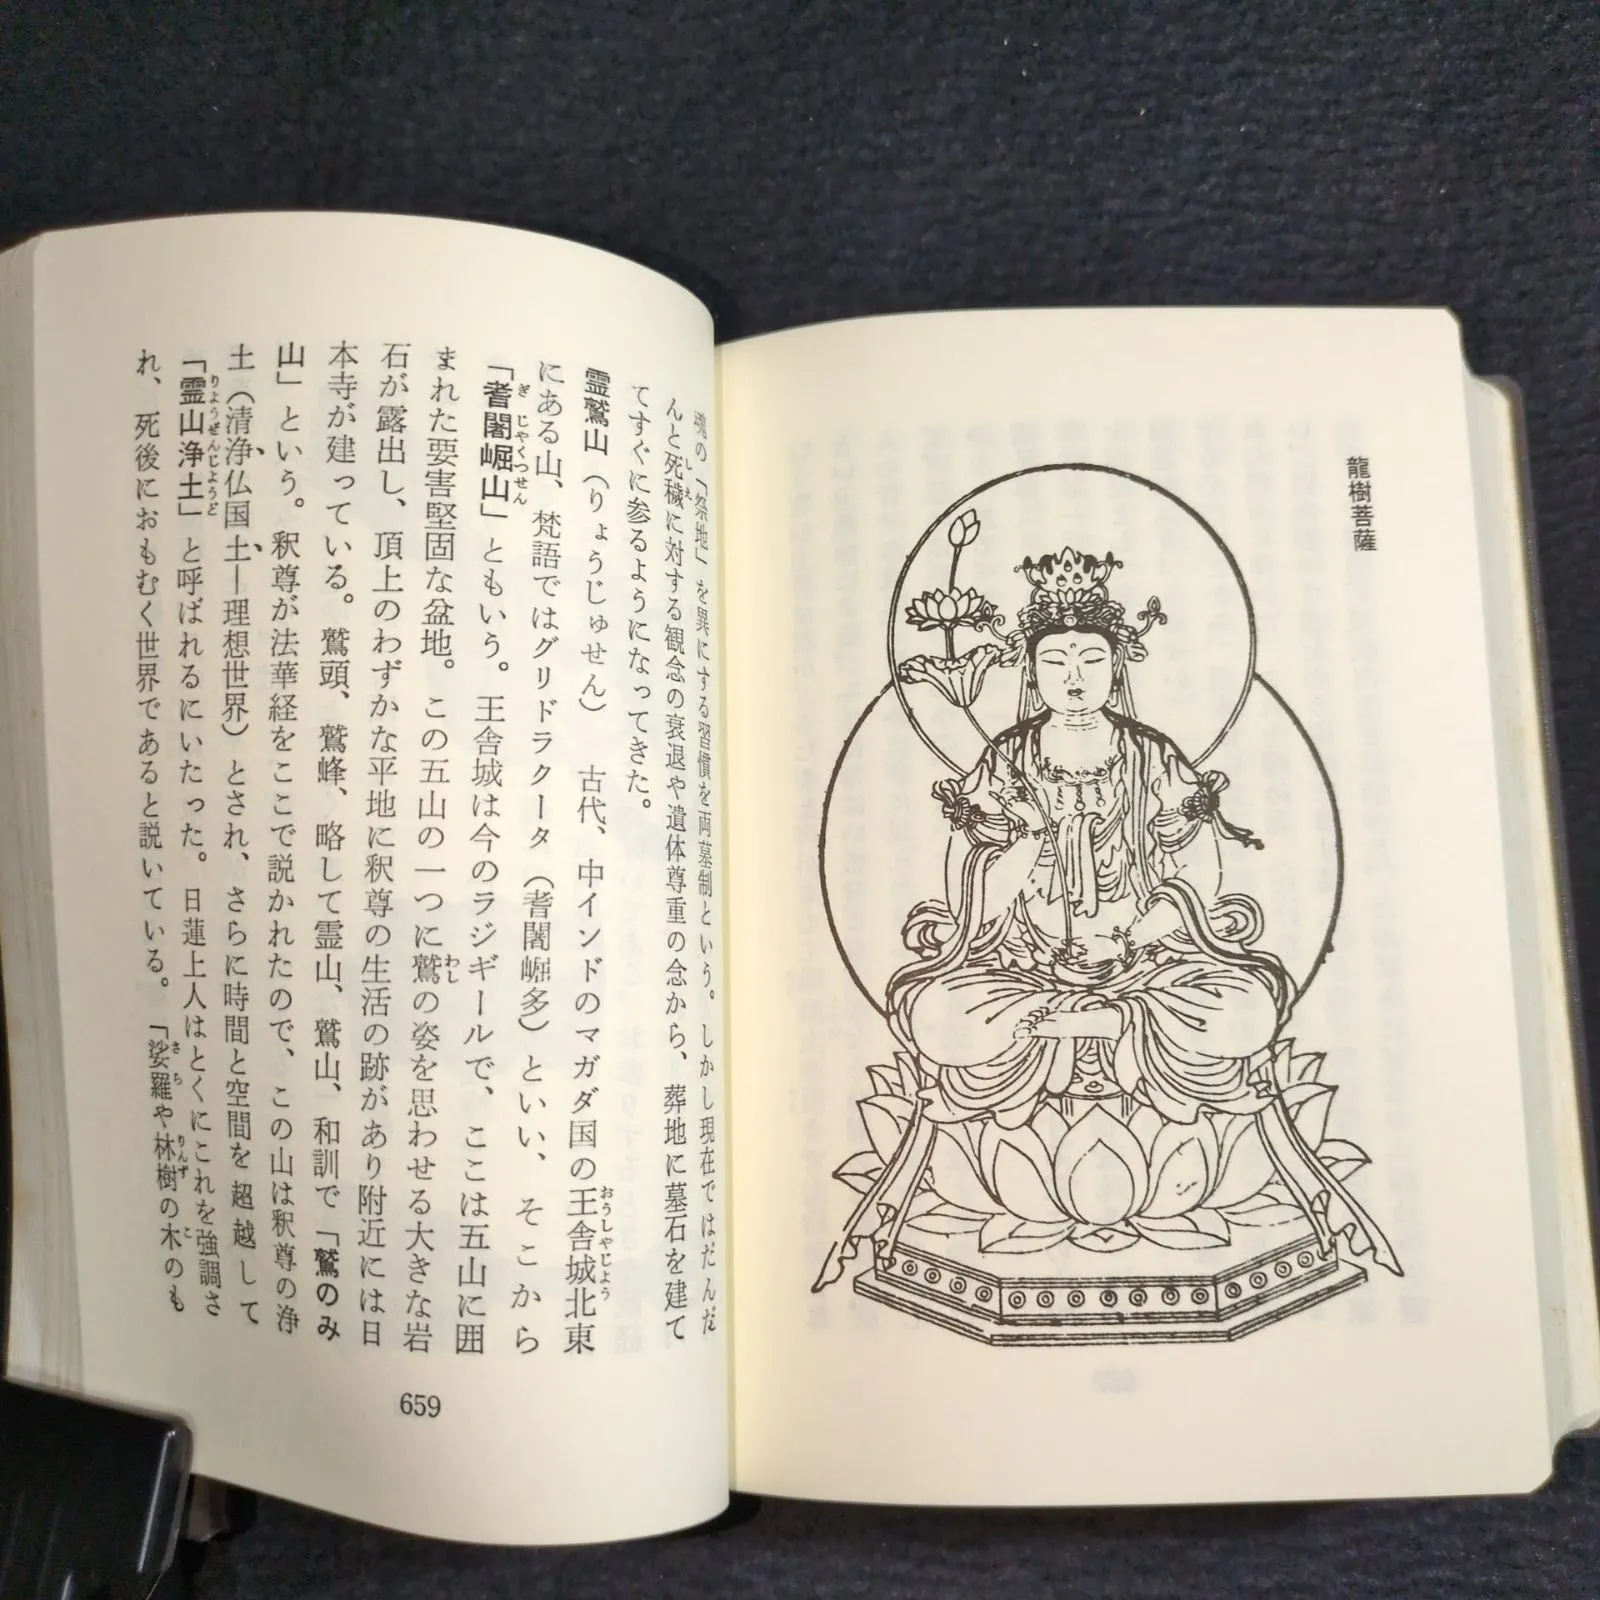 龍樹菩薩
魂の「祭地」を異にする習慣を両墓制という。しかし現在ではだんだ
んと死穢に対する観念の衰退や遺体尊重の念から、葬地に墓石を建て
てすぐに参るようになってきた。
霊鷲山（りょうじゅせん）　古代、中インドのマガダ国の王舎城北東
にある山、梵語ではグリドラクータ（耆闍崛多）といい、そこから
「耆闍崛山」ともいう。王舎城は今のラジギールで、ここは五山に囲
まれた要害堅固な盆地。この五山の一つに鷲の姿を思わせる大きな岩
石が露出し、頂上のわずかな平地に釈尊の生活の跡があり附近には日
本寺が建っている。鷲頭、鷲峰、略して霊山、鷲山、和訓で「鷲のみ
山」という。釈尊が法華経をここで説かれたので、この山は釈尊の浄
土（清浄仏国土―理想世界）とされ、さらに時間と空間を超越して
「霊山浄土」と呼ばれるにいたった。日蓮上人はとくにこれを強調さ
れ、死後におもむく世界であると説いている。「娑羅や林樹の木のも
659